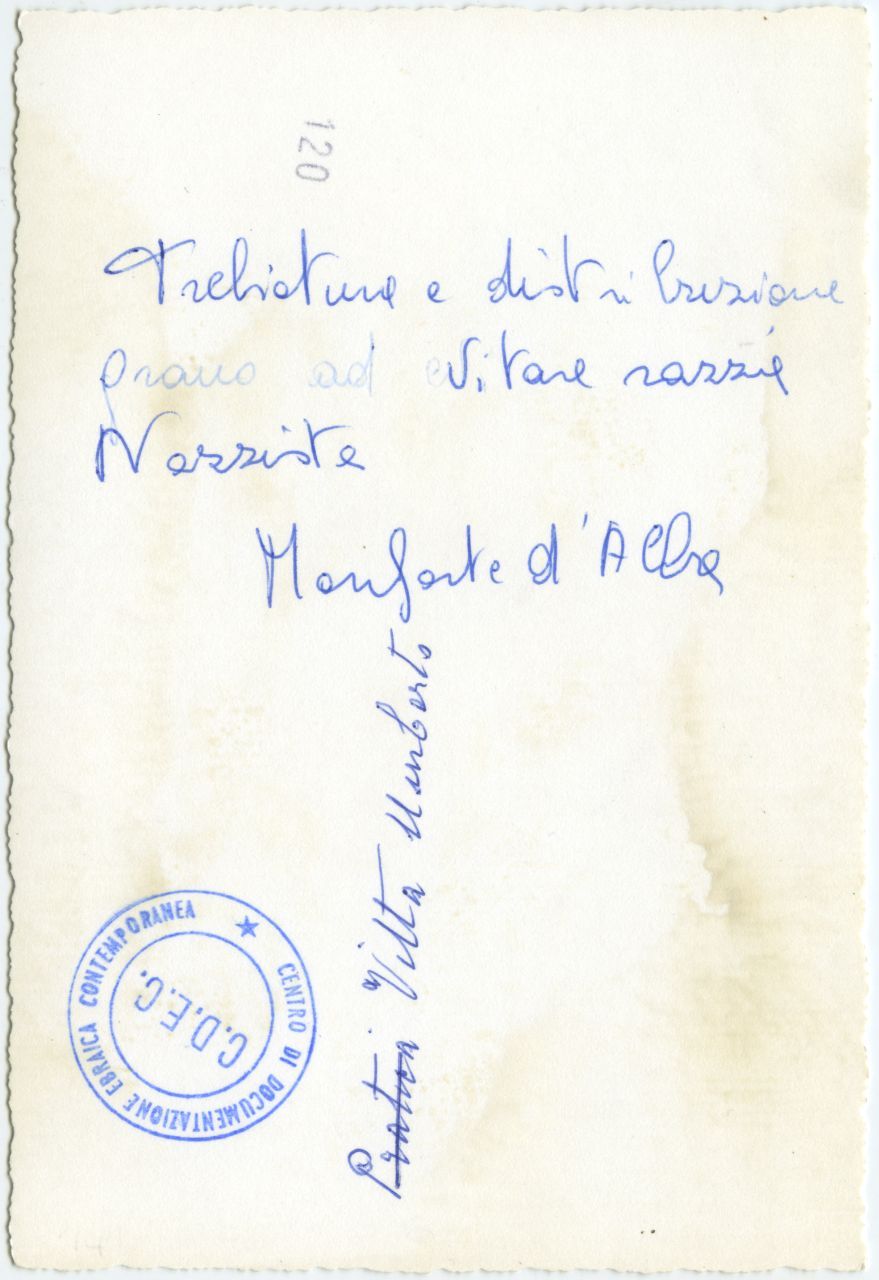 120
Trebiatura e distribuzione
grano ad evitare razzie
Nazziste
Monforte d'Alba
Pratica Vitta Umberto
CENTRO DI DOCUMENTAZIONE EBRAICA CONTEMPORANEA
C.D.E.C.